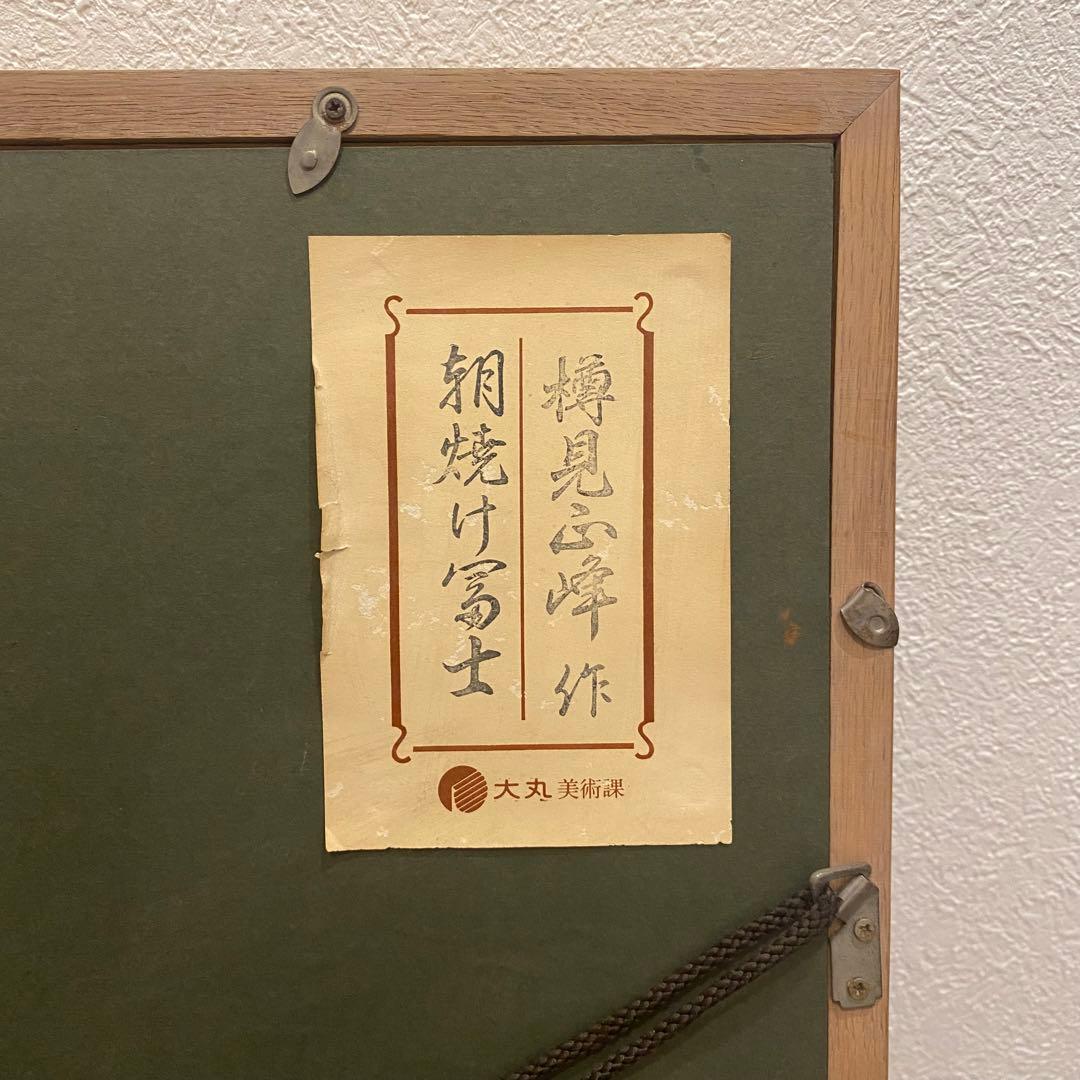 樽見正峰 作
朝焼け冨士
大丸 美術課